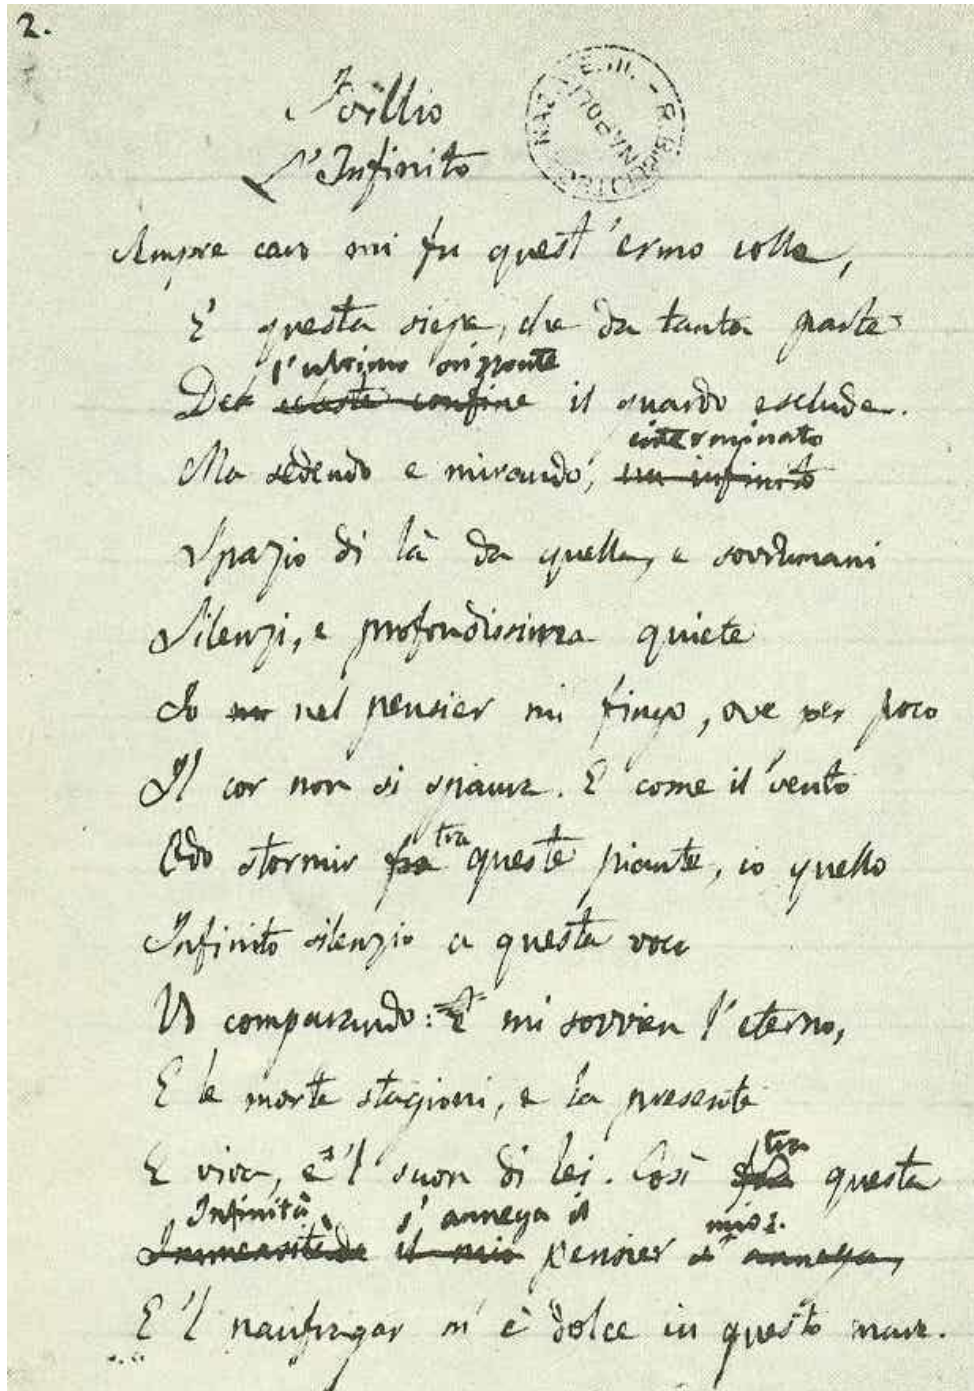 2.
Idillio
L'Infinito
Sempre caro mi fu quest'ermo colle,
E questa siepe, che da tanta parte
l'ultimo orizzonte
Del celeste confine il guardo esclude.
interminato
Ma sedendo e mirando, un infinito
Spazio di là da quella, e sovrumani
Silenzi, e profondissima quiete
Io nel pensier mi fingo, ove per poco
Il cor non si spaura. E come il vento
tra
Odo stormir fra queste piante, io quello
Infinito silenzio a questa voce
Vo comparando: e mi sovvien l'eterno,
E le morte stagioni, e la presente
tra
E viva, e 'l suon di lei. Così fra questa
Infinità s'annega il mio:
Immensitade il mio pensier s'annega,
E 'l naufragar m'è dolce in questo mare.